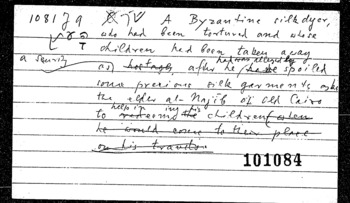 1081 J 9 A Byzantine silk dyer,
who had been tortured and whose
children had been taken away
a security
as hostages after he had allegedly spoiled
some precious silk garments asks
the elder al-Najīb of Old Cairo
help in
to redeeming his children (when
he would come to their place
on his transition
101084